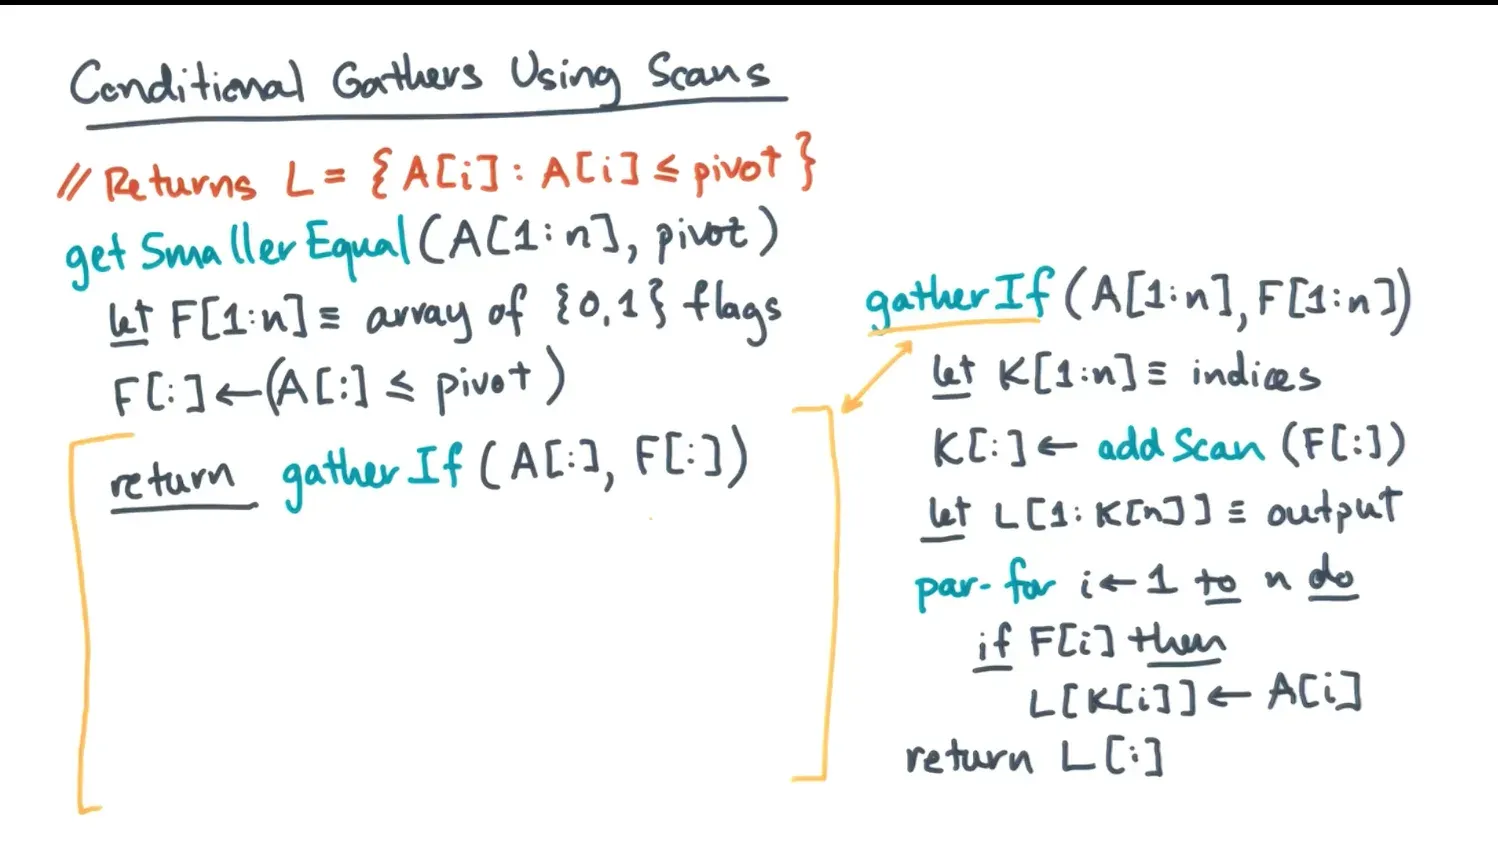 Conditional Gathers Using Scans
// Returns L = { A[i] : A[i] ≤ pivot }
getSmallerEqual (A[1:n], pivot)
let F[1:n] ≡ array of {0,1} flags
F[:] ← (A[:] ≤ pivot)
return gatherIf (A[:], F[:])
gatherIf (A[1:n], F[1:n])
let K[1:n] ≡ indices
K[:] ← addScan (F[:])
let L[1:K[n]] ≡ output
par-for i ← 1 to n do
if F[i] then
L[K[i]] ← A[i]
return L[:]